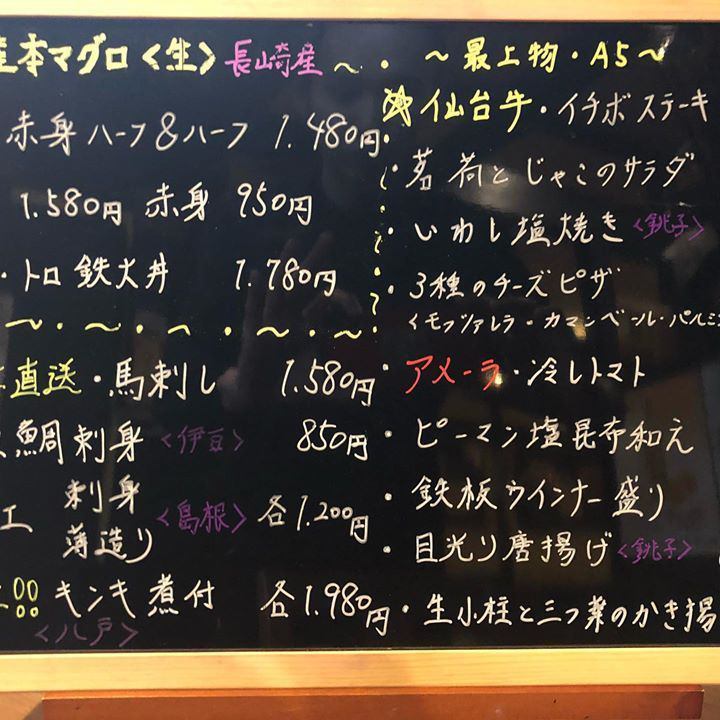 本マグロ〈生〉長崎産
赤身ハーフ&ハーフ 1.480円
1.580円 赤身 950円
・トロ鉄火丼 1.780円
直送・馬刺し 1.580円
鯛刺身〈伊豆〉 850円
刺身
薄造り〈島根〉各1.200円
キンキ煮付 各1.980円
〈八戸〉
〜最上物・A5〜
仙台牛・イチボステーキ
・茗荷とじゃこのサラダ
・いわし塩焼き〈銚子〉
・3種のチーズピザ
〈モッツァレラ・カマンベール・パルミ
・アメーラ・冷しトマト
・ピーマン塩昆布和え
・鉄板ウインナー盛り
・目光り唐揚げ〈銚子〉
・生小柱と三つ葉のかき揚